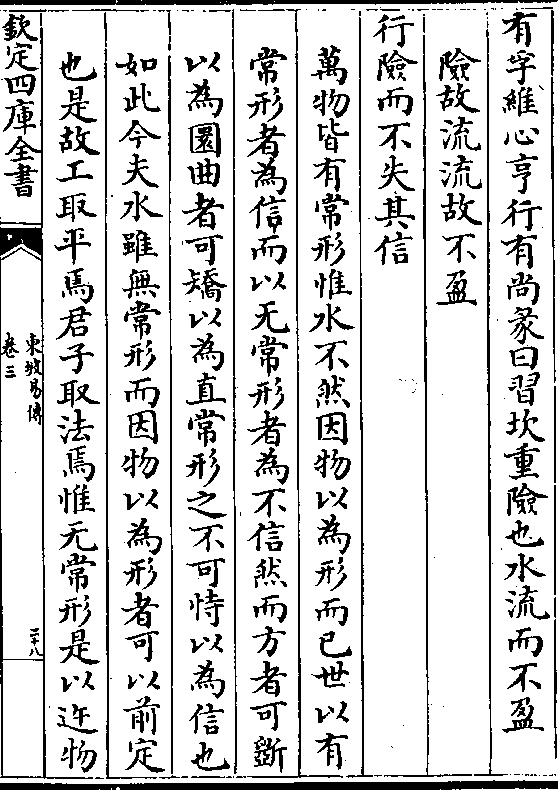 有孚維心亨行有尚彖曰習坎重險也水流而不盈
險故流流故不盈
行險而不失其信
萬物皆有常形惟水不然因物以為形而已世以有
常形者為信而以无常形者為不信然而方者可斵
以為圜曲者可矯以為直常形之不可恃以為信也
如此今夫水雖無常形而因物以為形者可以前定
也是故工取平焉君子取法焉惟无常形是以迕物
欽定四庫全書
東坡易傳
卷三
二十八